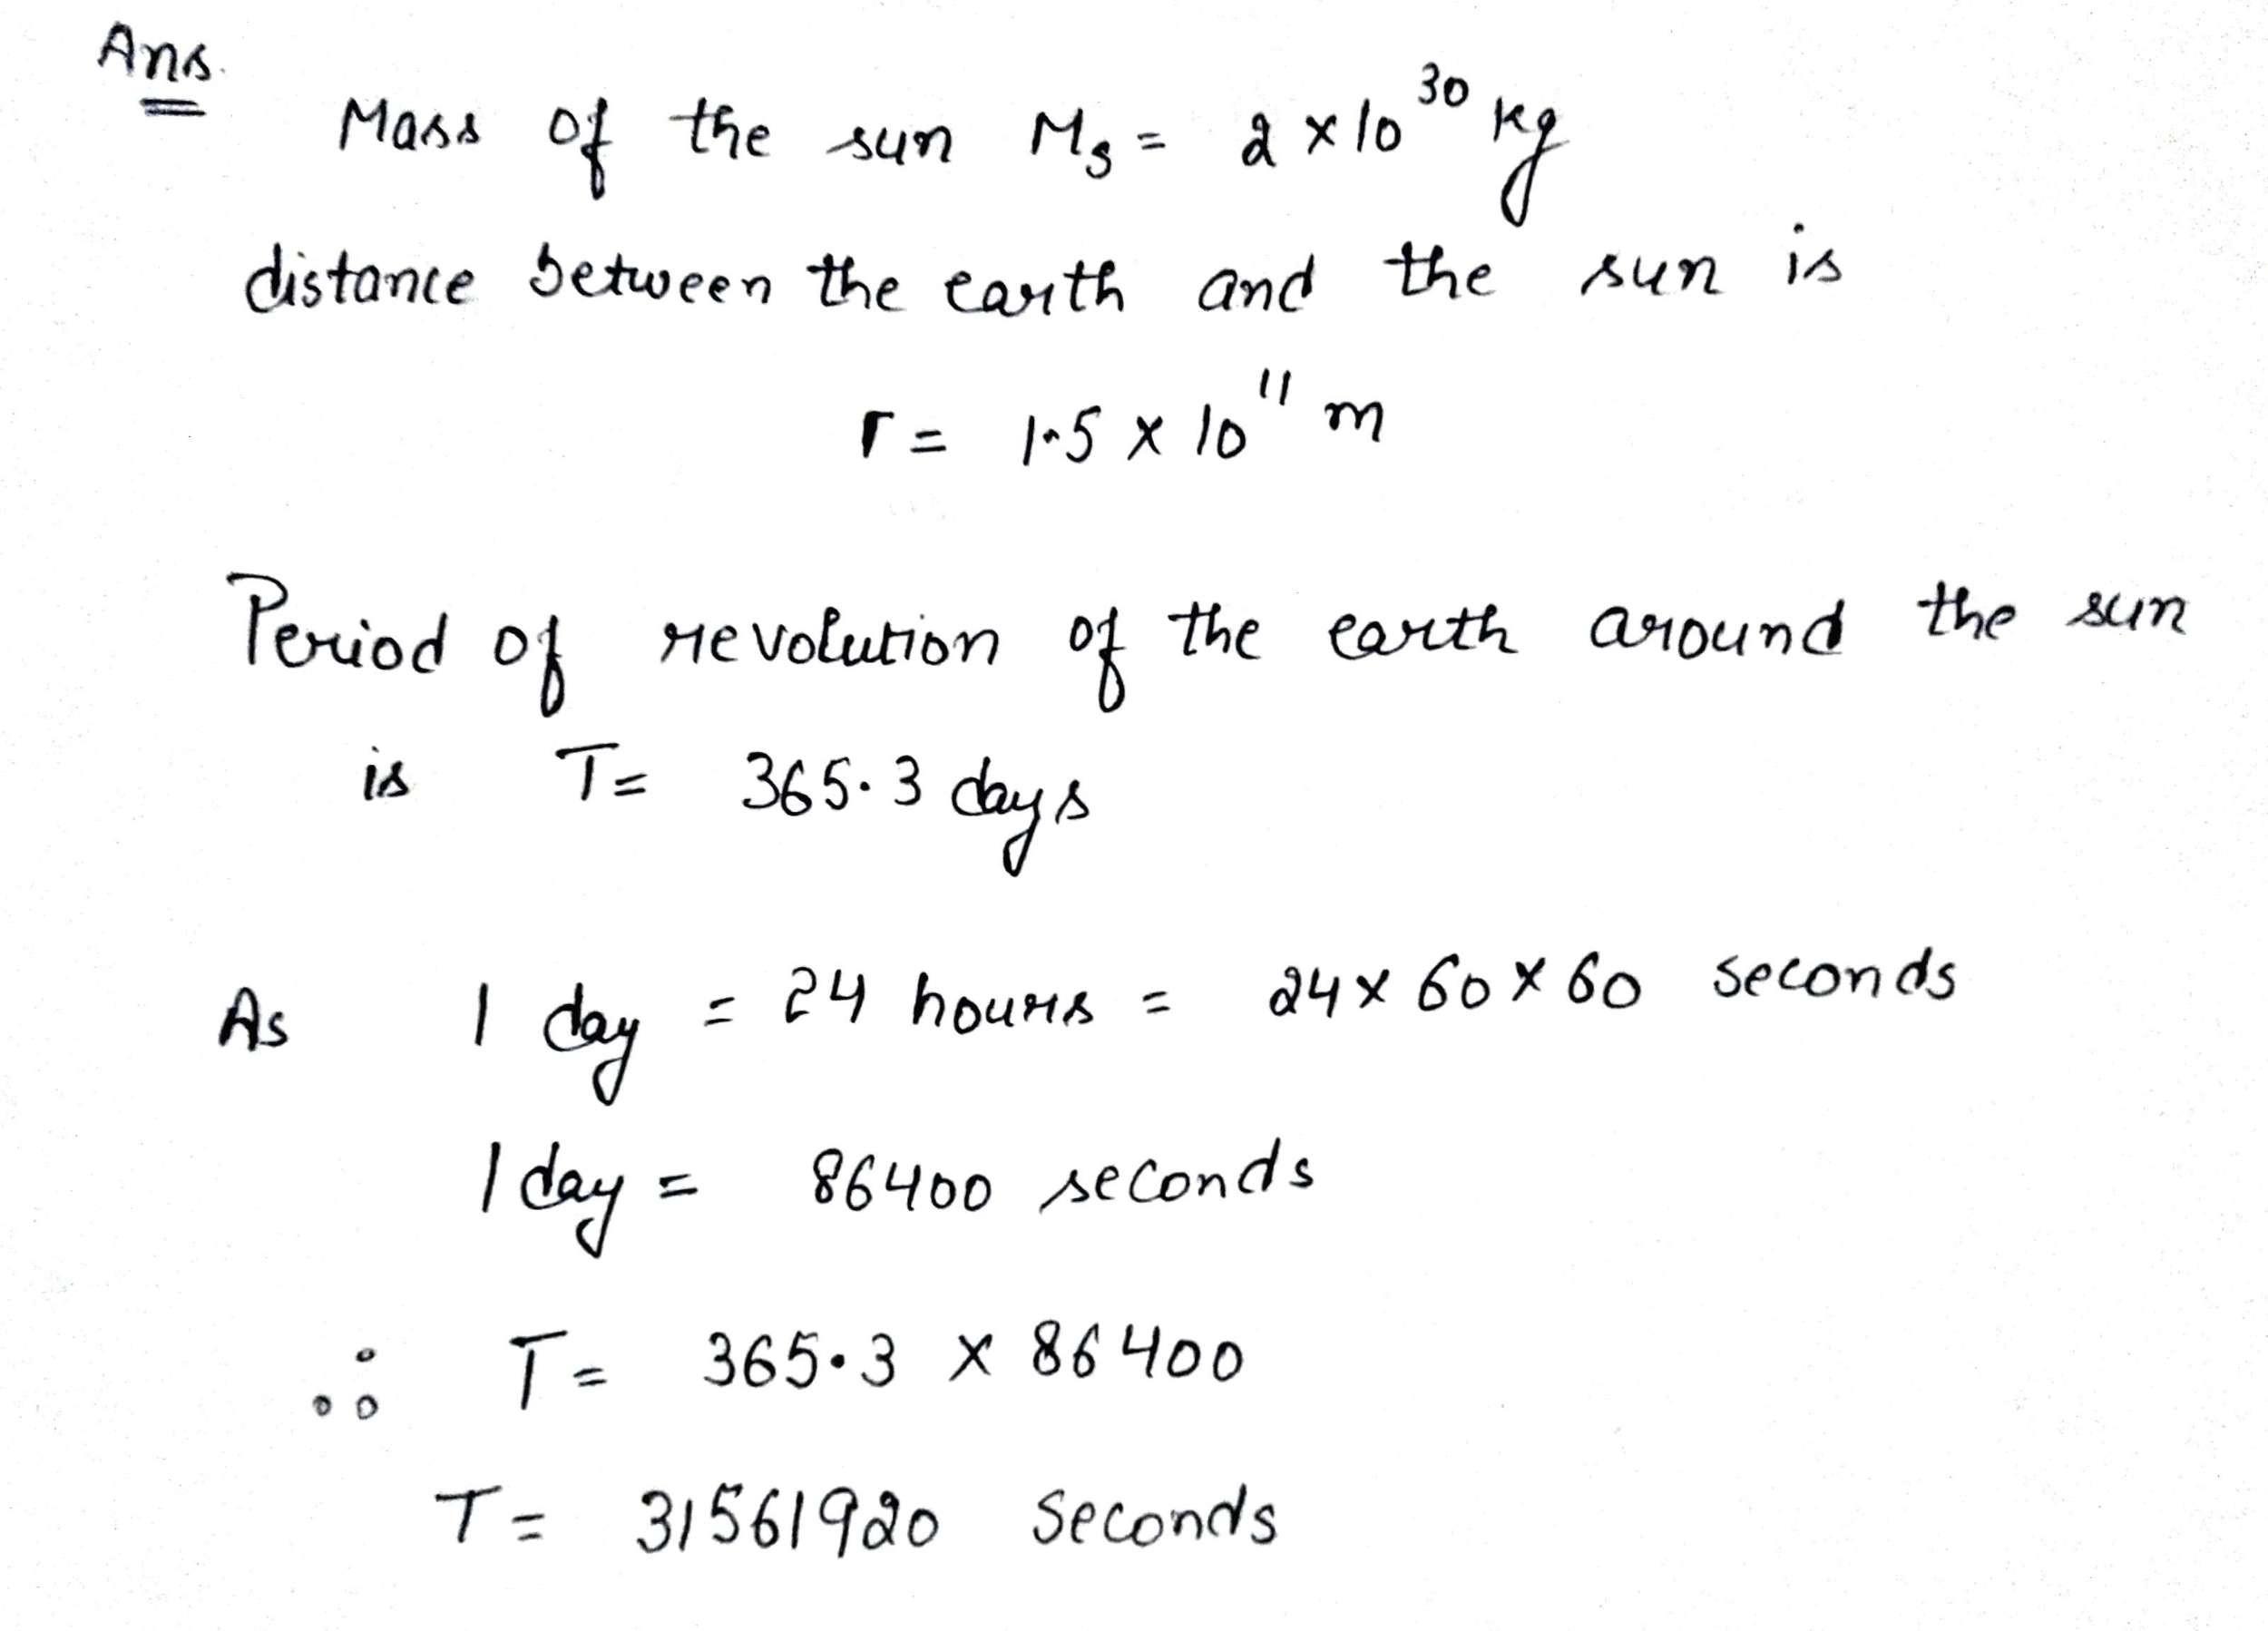 Ans.
Mass of the sun Ms = 2 x 10^30 kg
distance between the earth and the sun is
r = 1.5 x 10^11 m
Period of revolution of the earth around the sun
is T = 365.3 days
As 1 day = 24 hours = 24 x 60 x 60 seconds
1 day = 86400 seconds
∴ T = 365.3 x 86400
T = 31561920 seconds